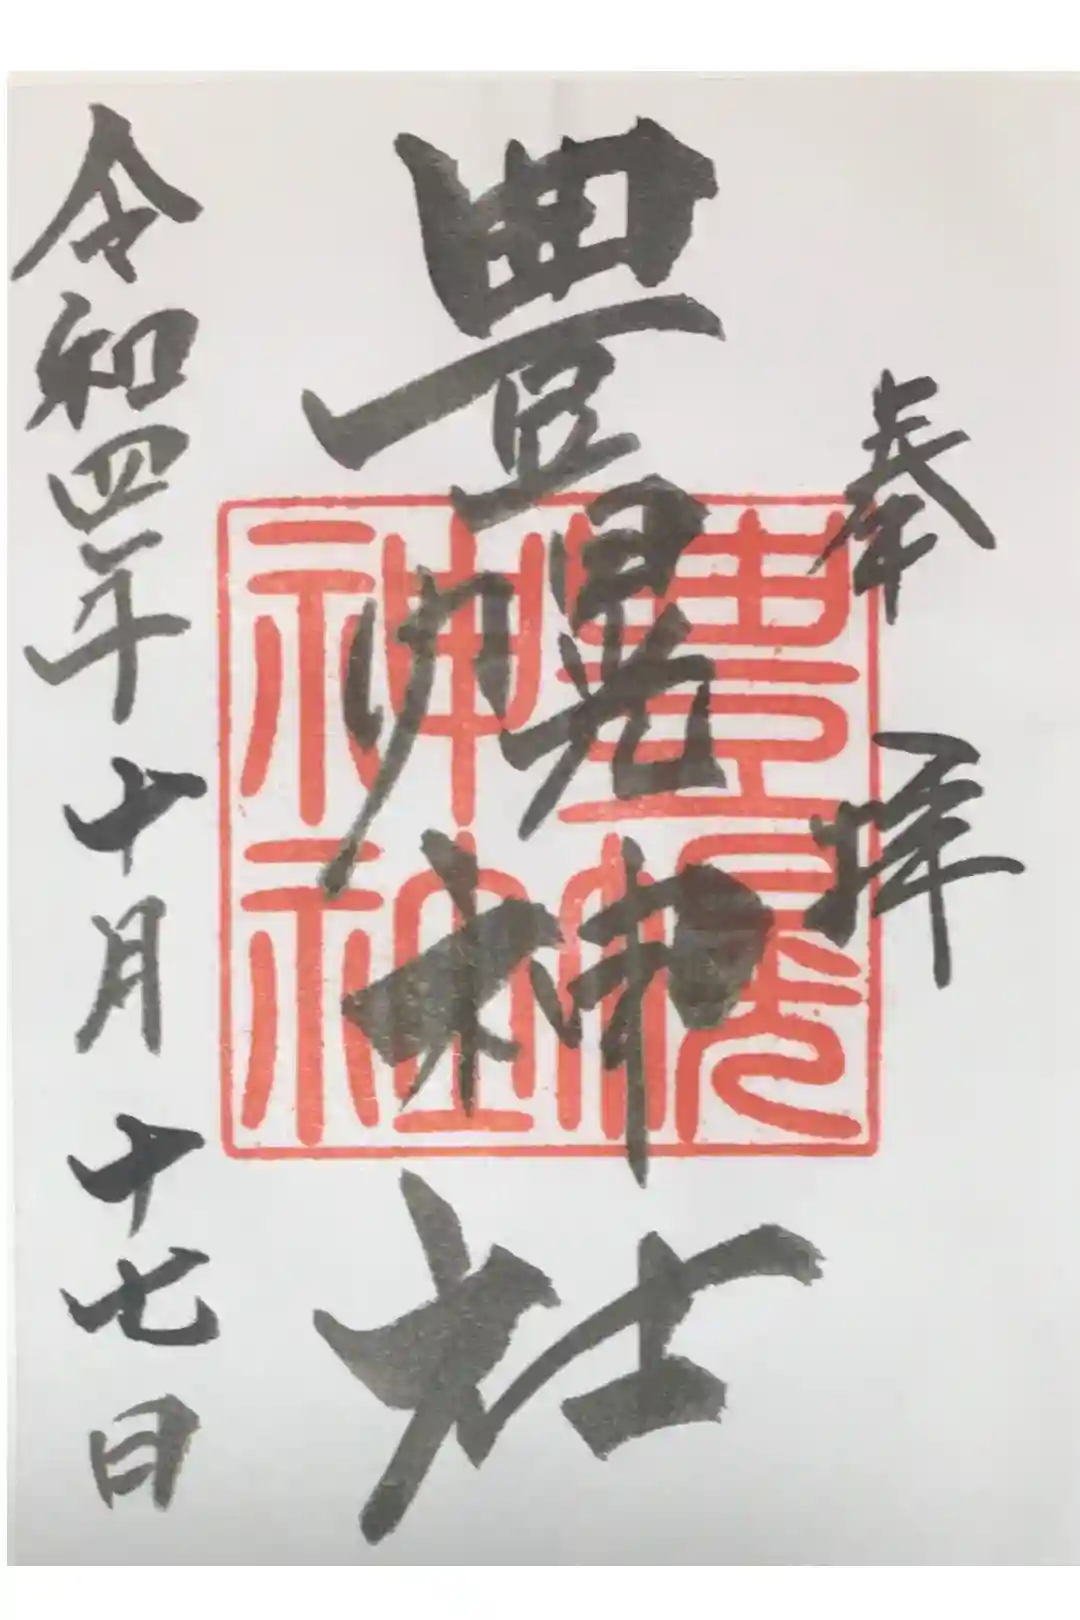 奉拝
豊幌神社
豊幌神社
令和四年十月十七日